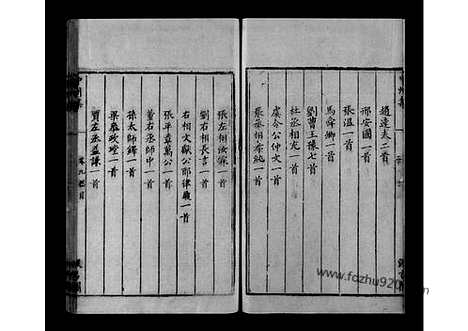 趙逵夫二首
邢安國一首
張溫一首
馬舜卿一首
劉曹王孫七首
杜丞相充一首
虞令公仲文一首
張丞相孝純一首
張左相汝霖一首
劉右相長言一首
右相文獻公耶律履一首
張平章萬公一首
董右丞師中一首
孫太師鐸一首
梁參政瑭一首
賈左丞益謙一首
www.fozhu920.com